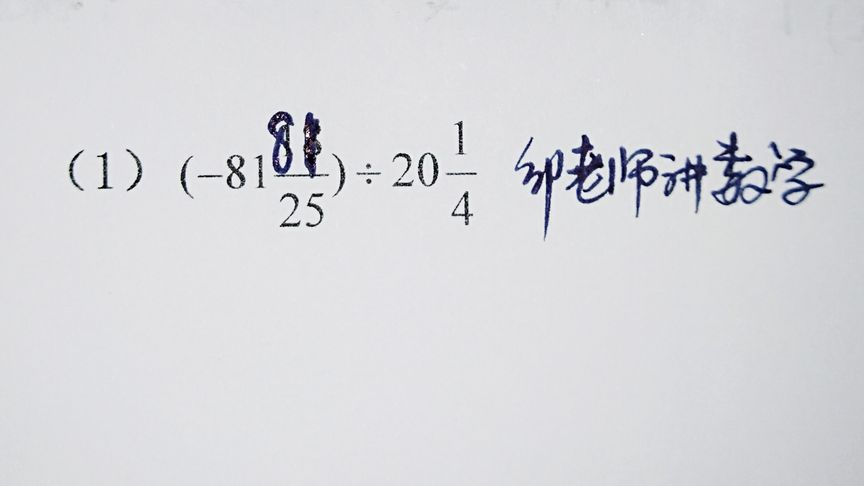 (1) (-81 81/25) ÷ 20 1/4 邹老师讲数学